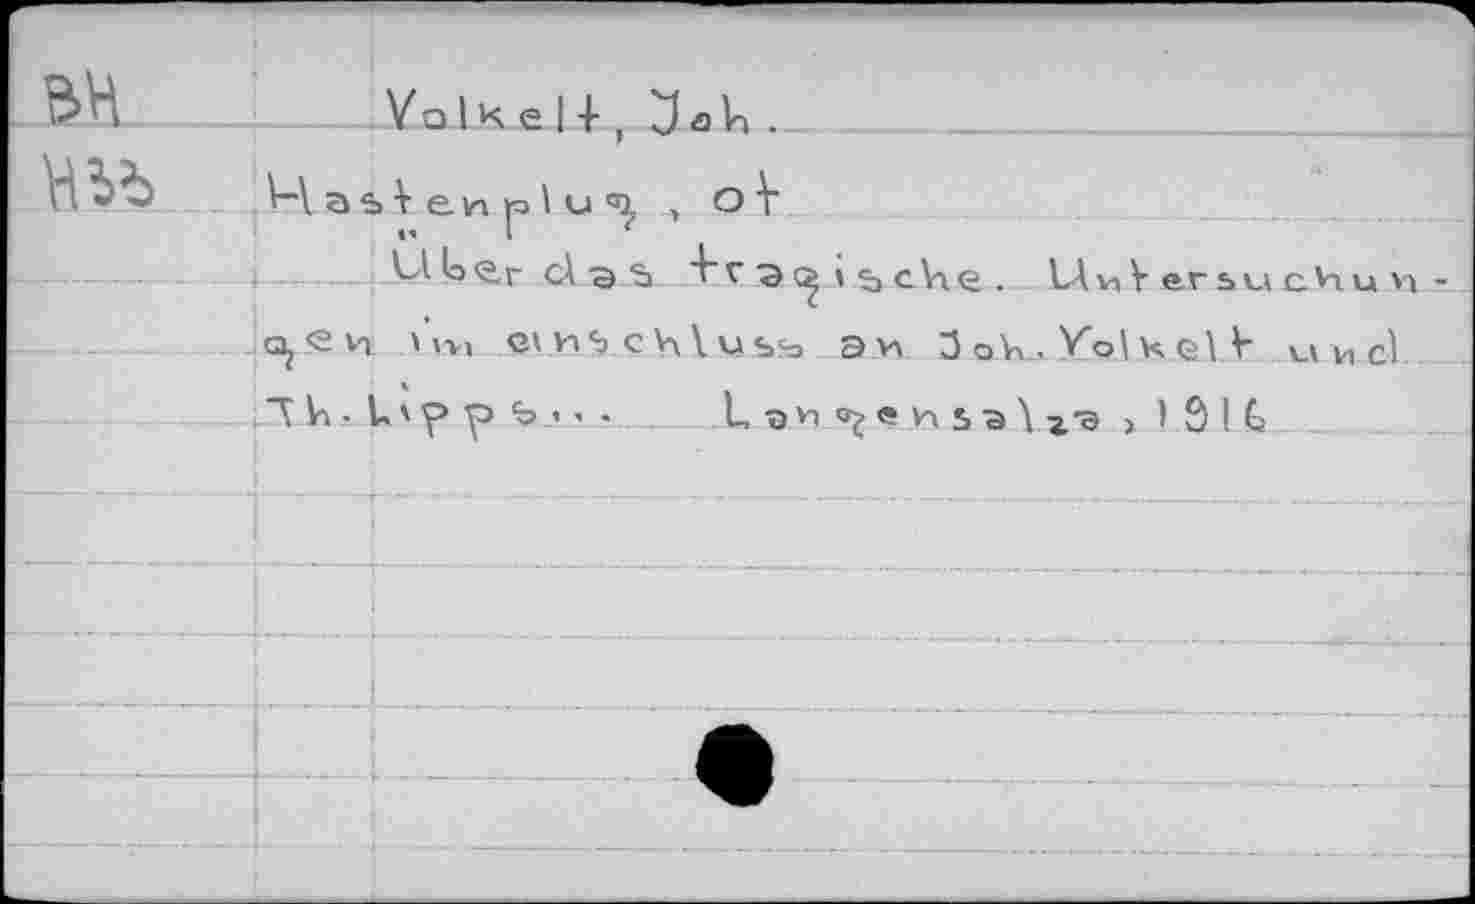 BH Volkelt, Joh.
H33 Hastenplug, ot
Über das tragische. Untersuchun-
gen im einschluss an Joh. Volkelt und
Th. Lipps... Langensalza, 1916